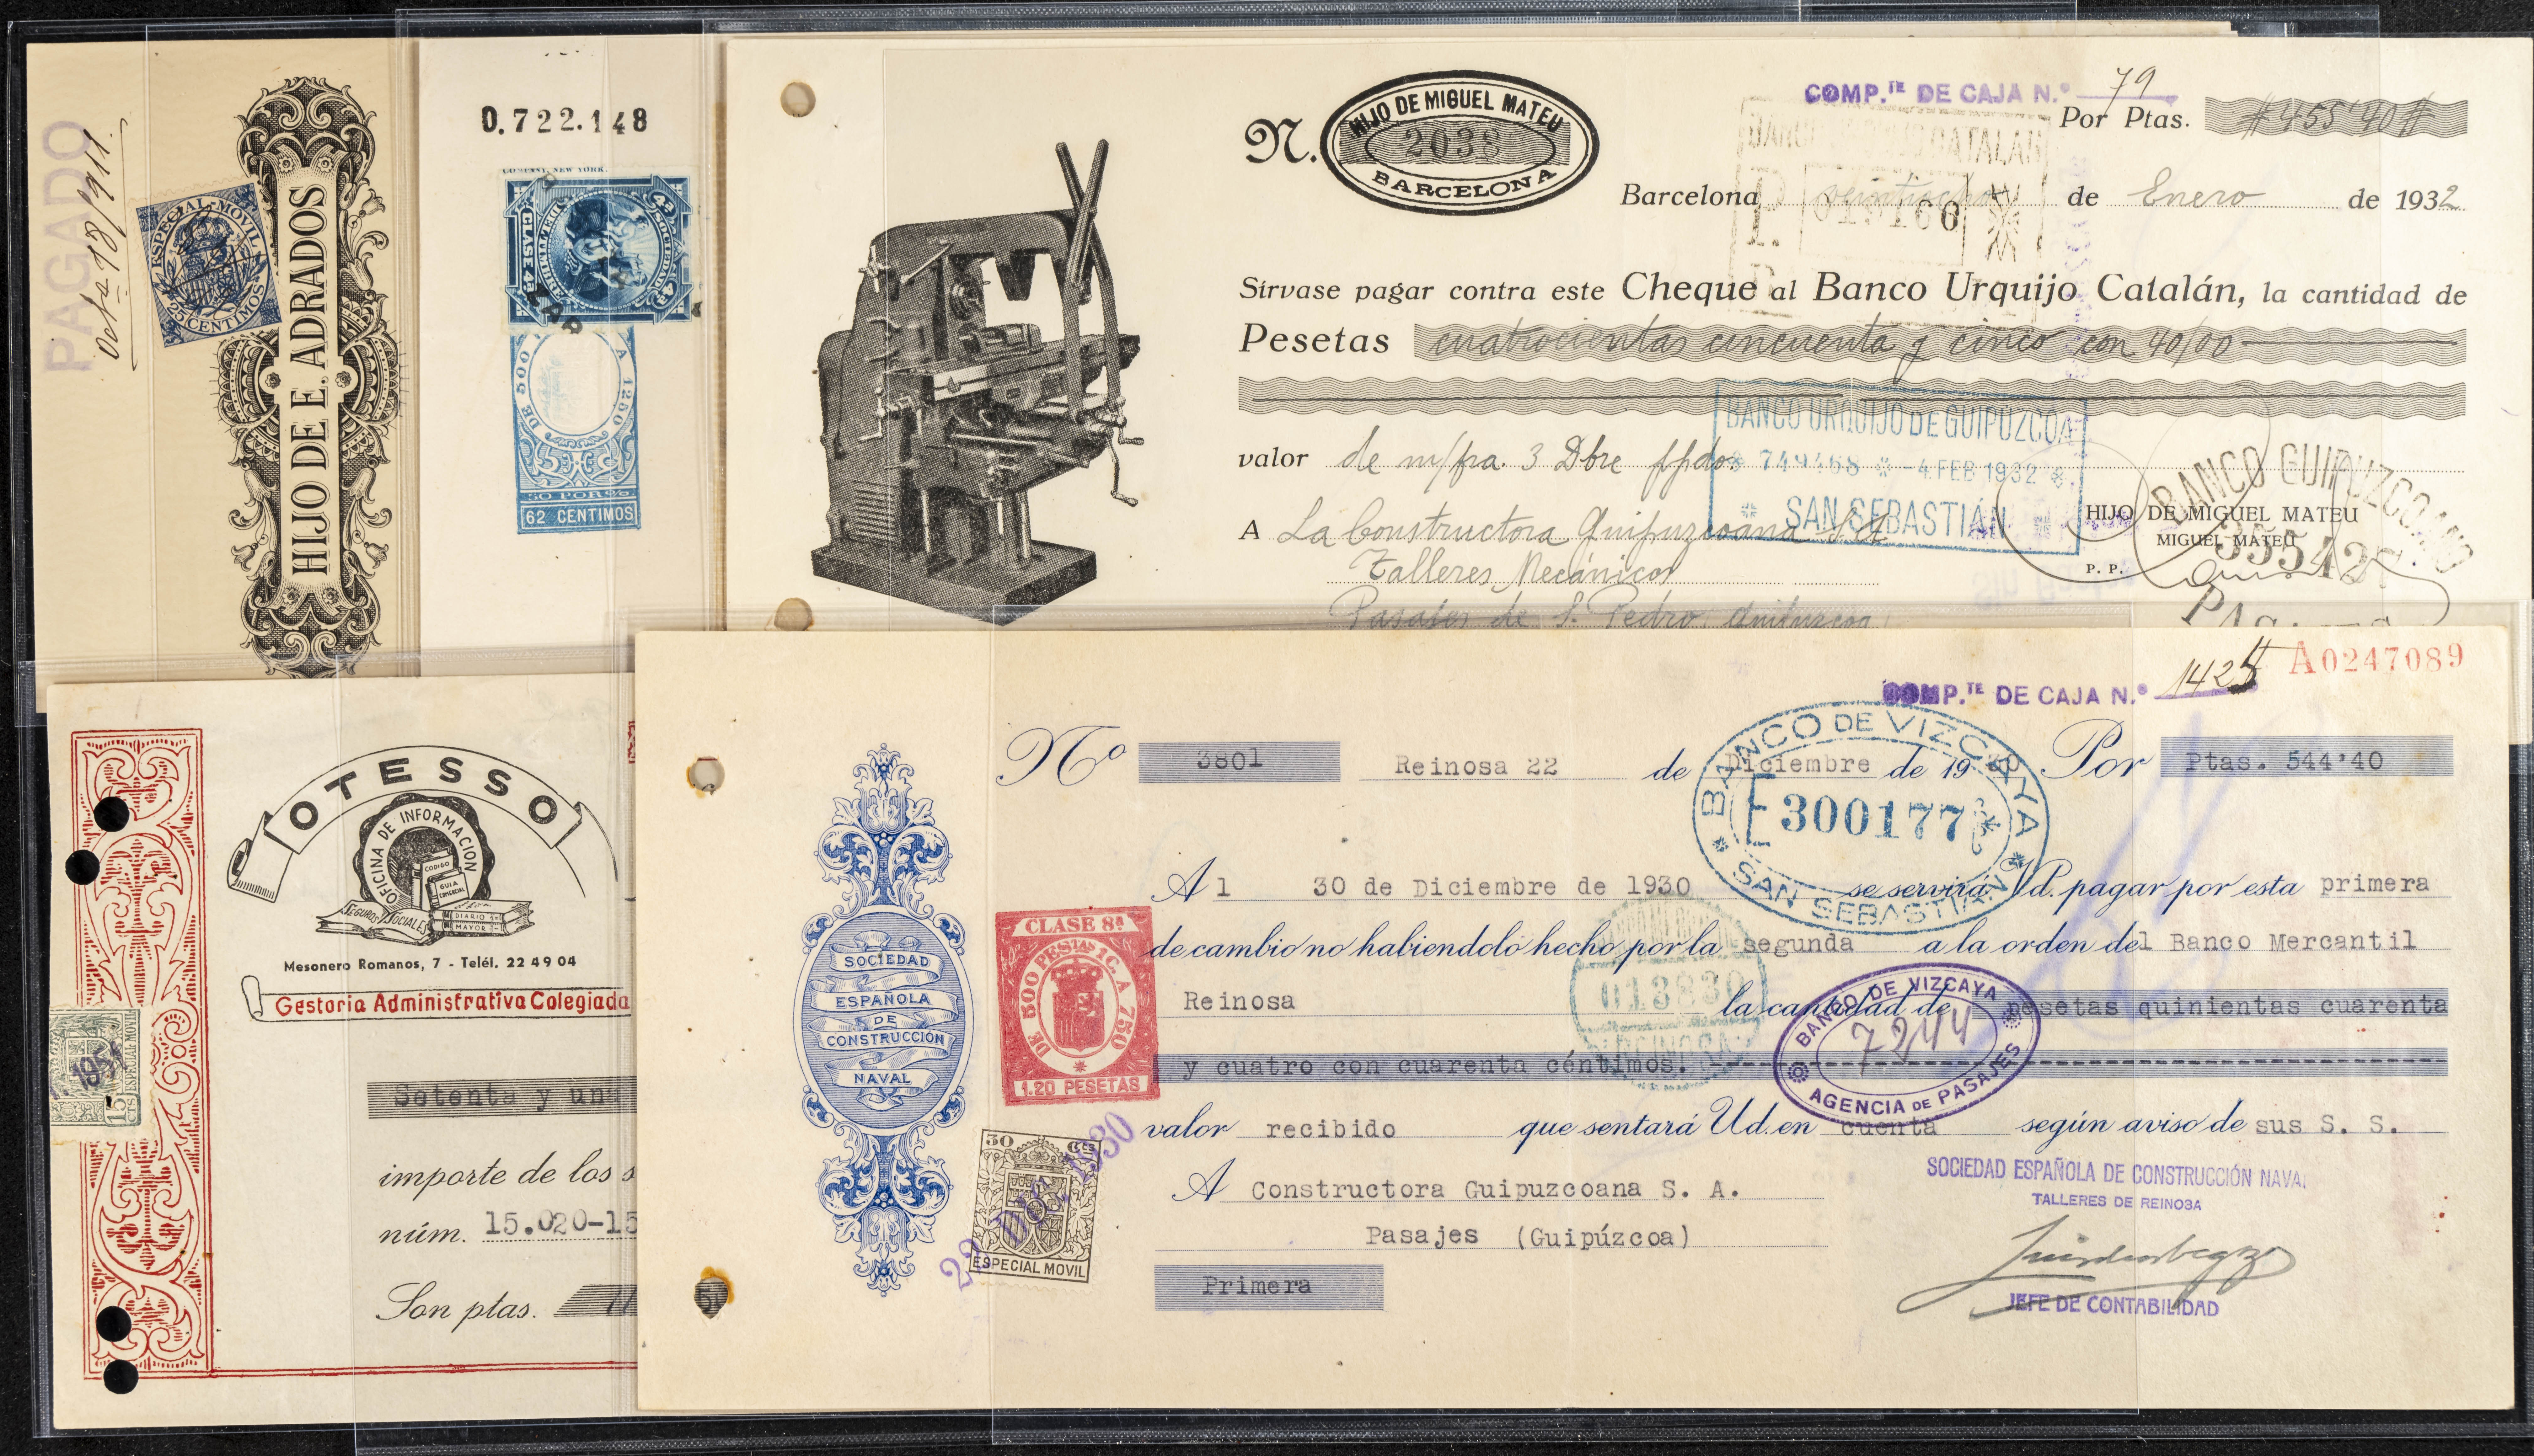 PAGADO
Octe 18/911.
ESPECIAL MOVIL
25 CENTIMOS
HIJO DE E. ADRADOS
0.722.148
COMPANY, NEW YORK.
SOCIEDAD
TIMBRE
CLASE 4ª
ZAR
DE 500 A 1250
50 POR %
62 CENTIMOS
COMP.TE DE CAJA N.º 79
N. HIJO DE MIGUEL MATEU
2038
BARCELONA
Por Ptas. #455'40#
Barcelona veintiocho de Enero de 1932
Sírvase pagar contra este Cheque al Banco Urquijo Catalán, la cantidad de
Pesetas cuatrocientas cincuenta y cinco con 40/00
BANCO URQUIJO DE GUIPUZCOA
749468 - 4 FEB 1932
SAN SEBASTIÁN
valor de m/fra. 3 Dbre ppdo
A La Constructora Guipuzcoana S.A.
Talleres Mecánicos
Pasajes de S. Pedro, Guipuzcoa
BANCO GUIPUZCOANO
HIJO DE MIGUEL MATEU
MIGUEL MATEU
P. P.
OTESSO
OFICINA DE INFORMACION
CODIGO
GUIA COMERCIAL
SEGUROS SOCIALES
DIARIO
MAYOR
Mesonero Romanos, 7 - Teléf. 22 49 04
Gestoria Administrativa Colegiada
15 CTS
ESPECIAL MOVIL
Setenta y una
importe de los s
núm. 15.020-15
Son ptas.
COMP.TE DE CAJA N.º 1425
A0247089
Nº 3801 Reinosa 22 de Diciembre de 1930 Por Ptas. 544'40
BANCO DE VIZCAYA
300177
SAN SEBASTIAN
Al 30 de Diciembre de 1930 se servirá Vd. pagar por esta primera
de cambio no habiendolo hecho por la segunda a la orden del Banco Mercantil
Reinosa la cantidad de pesetas quinientas cuarenta
y cuatro con cuarenta céntimos.
013830
REINOSA
BANCO DE VIZCAYA
7244
AGENCIA DE PASAJES
valor recibido que sentará Ud. en cuenta según aviso de sus S. S.
A Constructora Guipuzcoana S. A.
Pasajes (Guipúzcoa)
Primera
SOCIEDAD
ESPAÑOLA
DE
CONSTRUCCIÓN
NAVAL
CLASE 8ª
DE 500 PESETAS 1 C. A 750
1.20 PESETAS
50 CTS
ESPECIAL MOVIL
22 DIC 1930
SOCIEDAD ESPAÑOLA DE CONSTRUCCIÓN NAVAL
TALLERES DE REINOSA
JEFE DE CONTABILIDAD